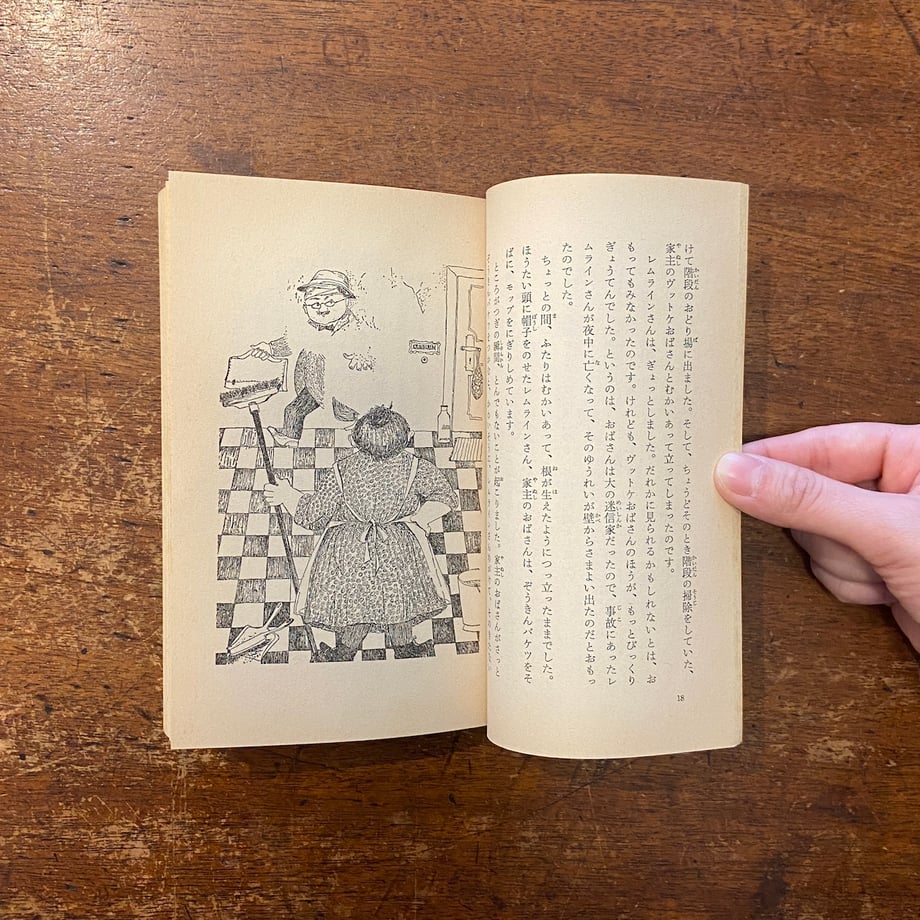 けて階段のおどり場に出ました。そして、ちょうどそのとき階段の掃除をしていた、
家主のヴットケおばさんとむかいあって立ってしまったのです。
レムラインさんは、ぎょっとしました。だれかに見られるかもしれないとは、お
もってもみなかったのです。けれども、ヴットケおばさんのほうが、もっとびっくり
ぎょうてんでした。というのは、おばさんは大の迷信家だったので、事故にあったレ
ムラインさんが夜中に亡くなって、そのゆうれいが壁からさまよい出たのだとおもっ
たのでした。
ちょっとの間、ふたりはむかいあって、根が生えたようにつっ立ったままでした。
ほうたい頭に帽子をのせたレムラインさん、家主のおばさんは、ぞうきんバケツをそ
ばに、モップをにぎりしめています。
ところがつぎの瞬間、とんでもないことが起こりました。家主のおばさんがさっと
18